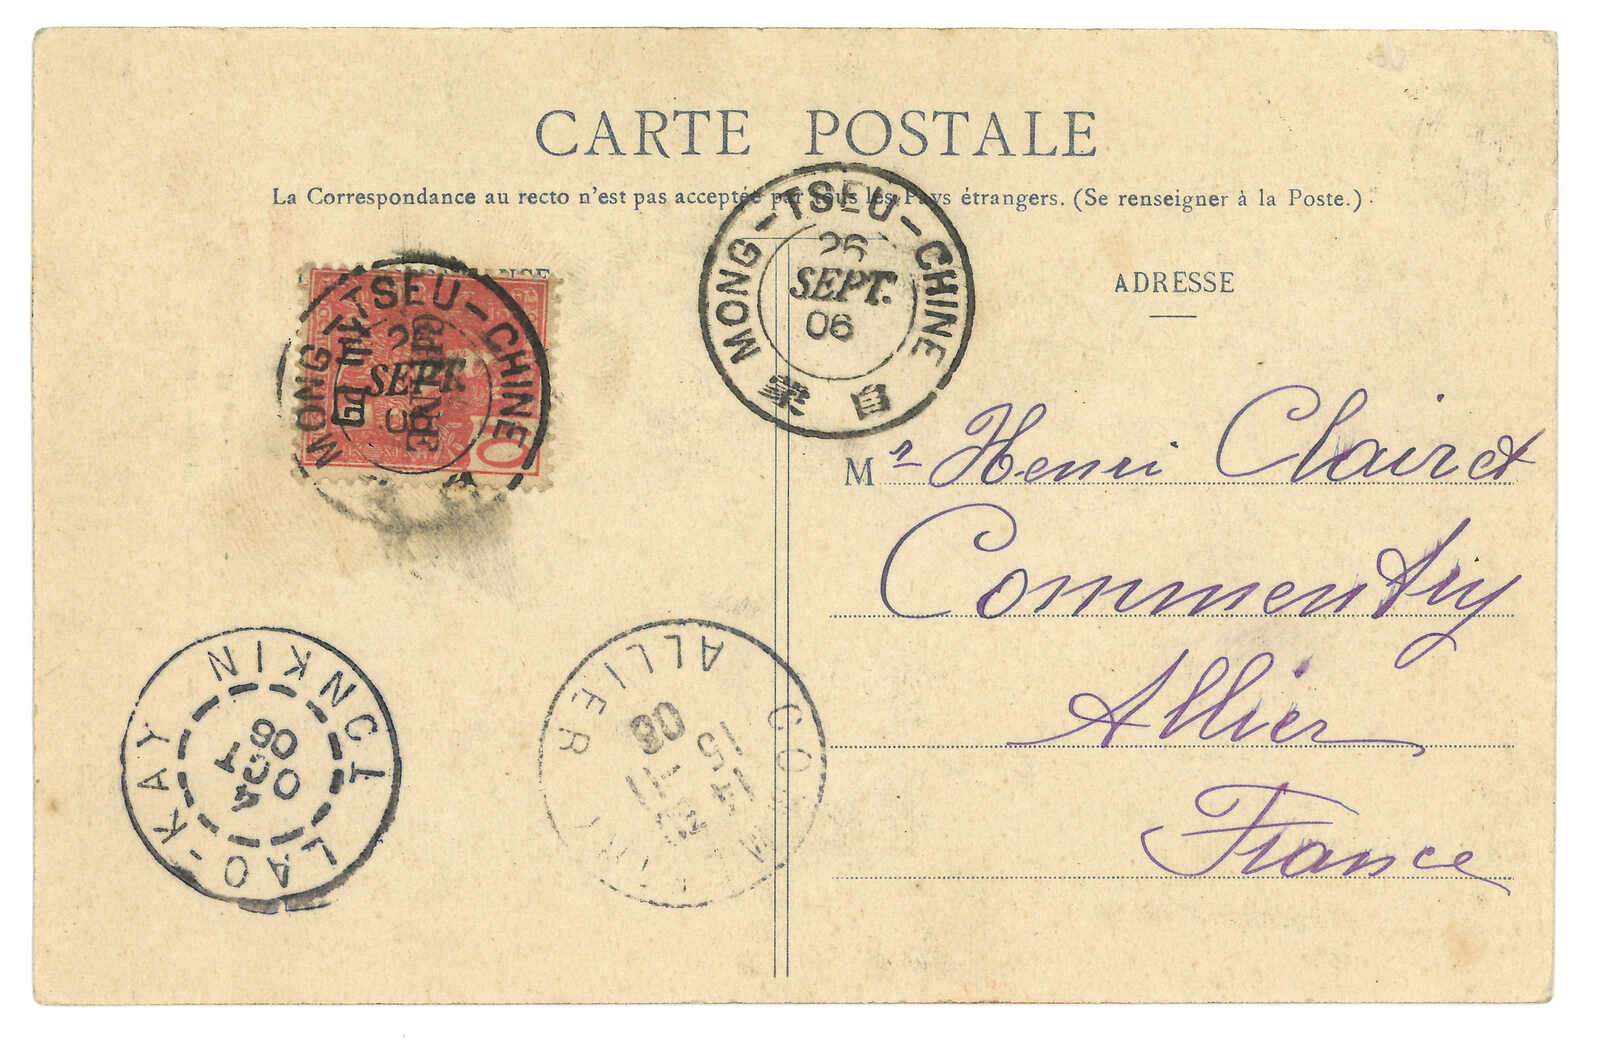 CARTE POSTALE
La Correspondance au recto n'est pas acceptée par tous les Pays étrangers. (Se renseigner à la Poste.)
ADRESSE
MONG-TSEU-CHINE
26
SEPT.
06
蒙自
MONG-TSEU-CHINE
SEPT.
06
10
Mr Henri Clairet
Commentry
Allier
France
LAO-KAY
TONKIN
4
OCT
06
COMMENTRY
ALLIER
14
15
11
06